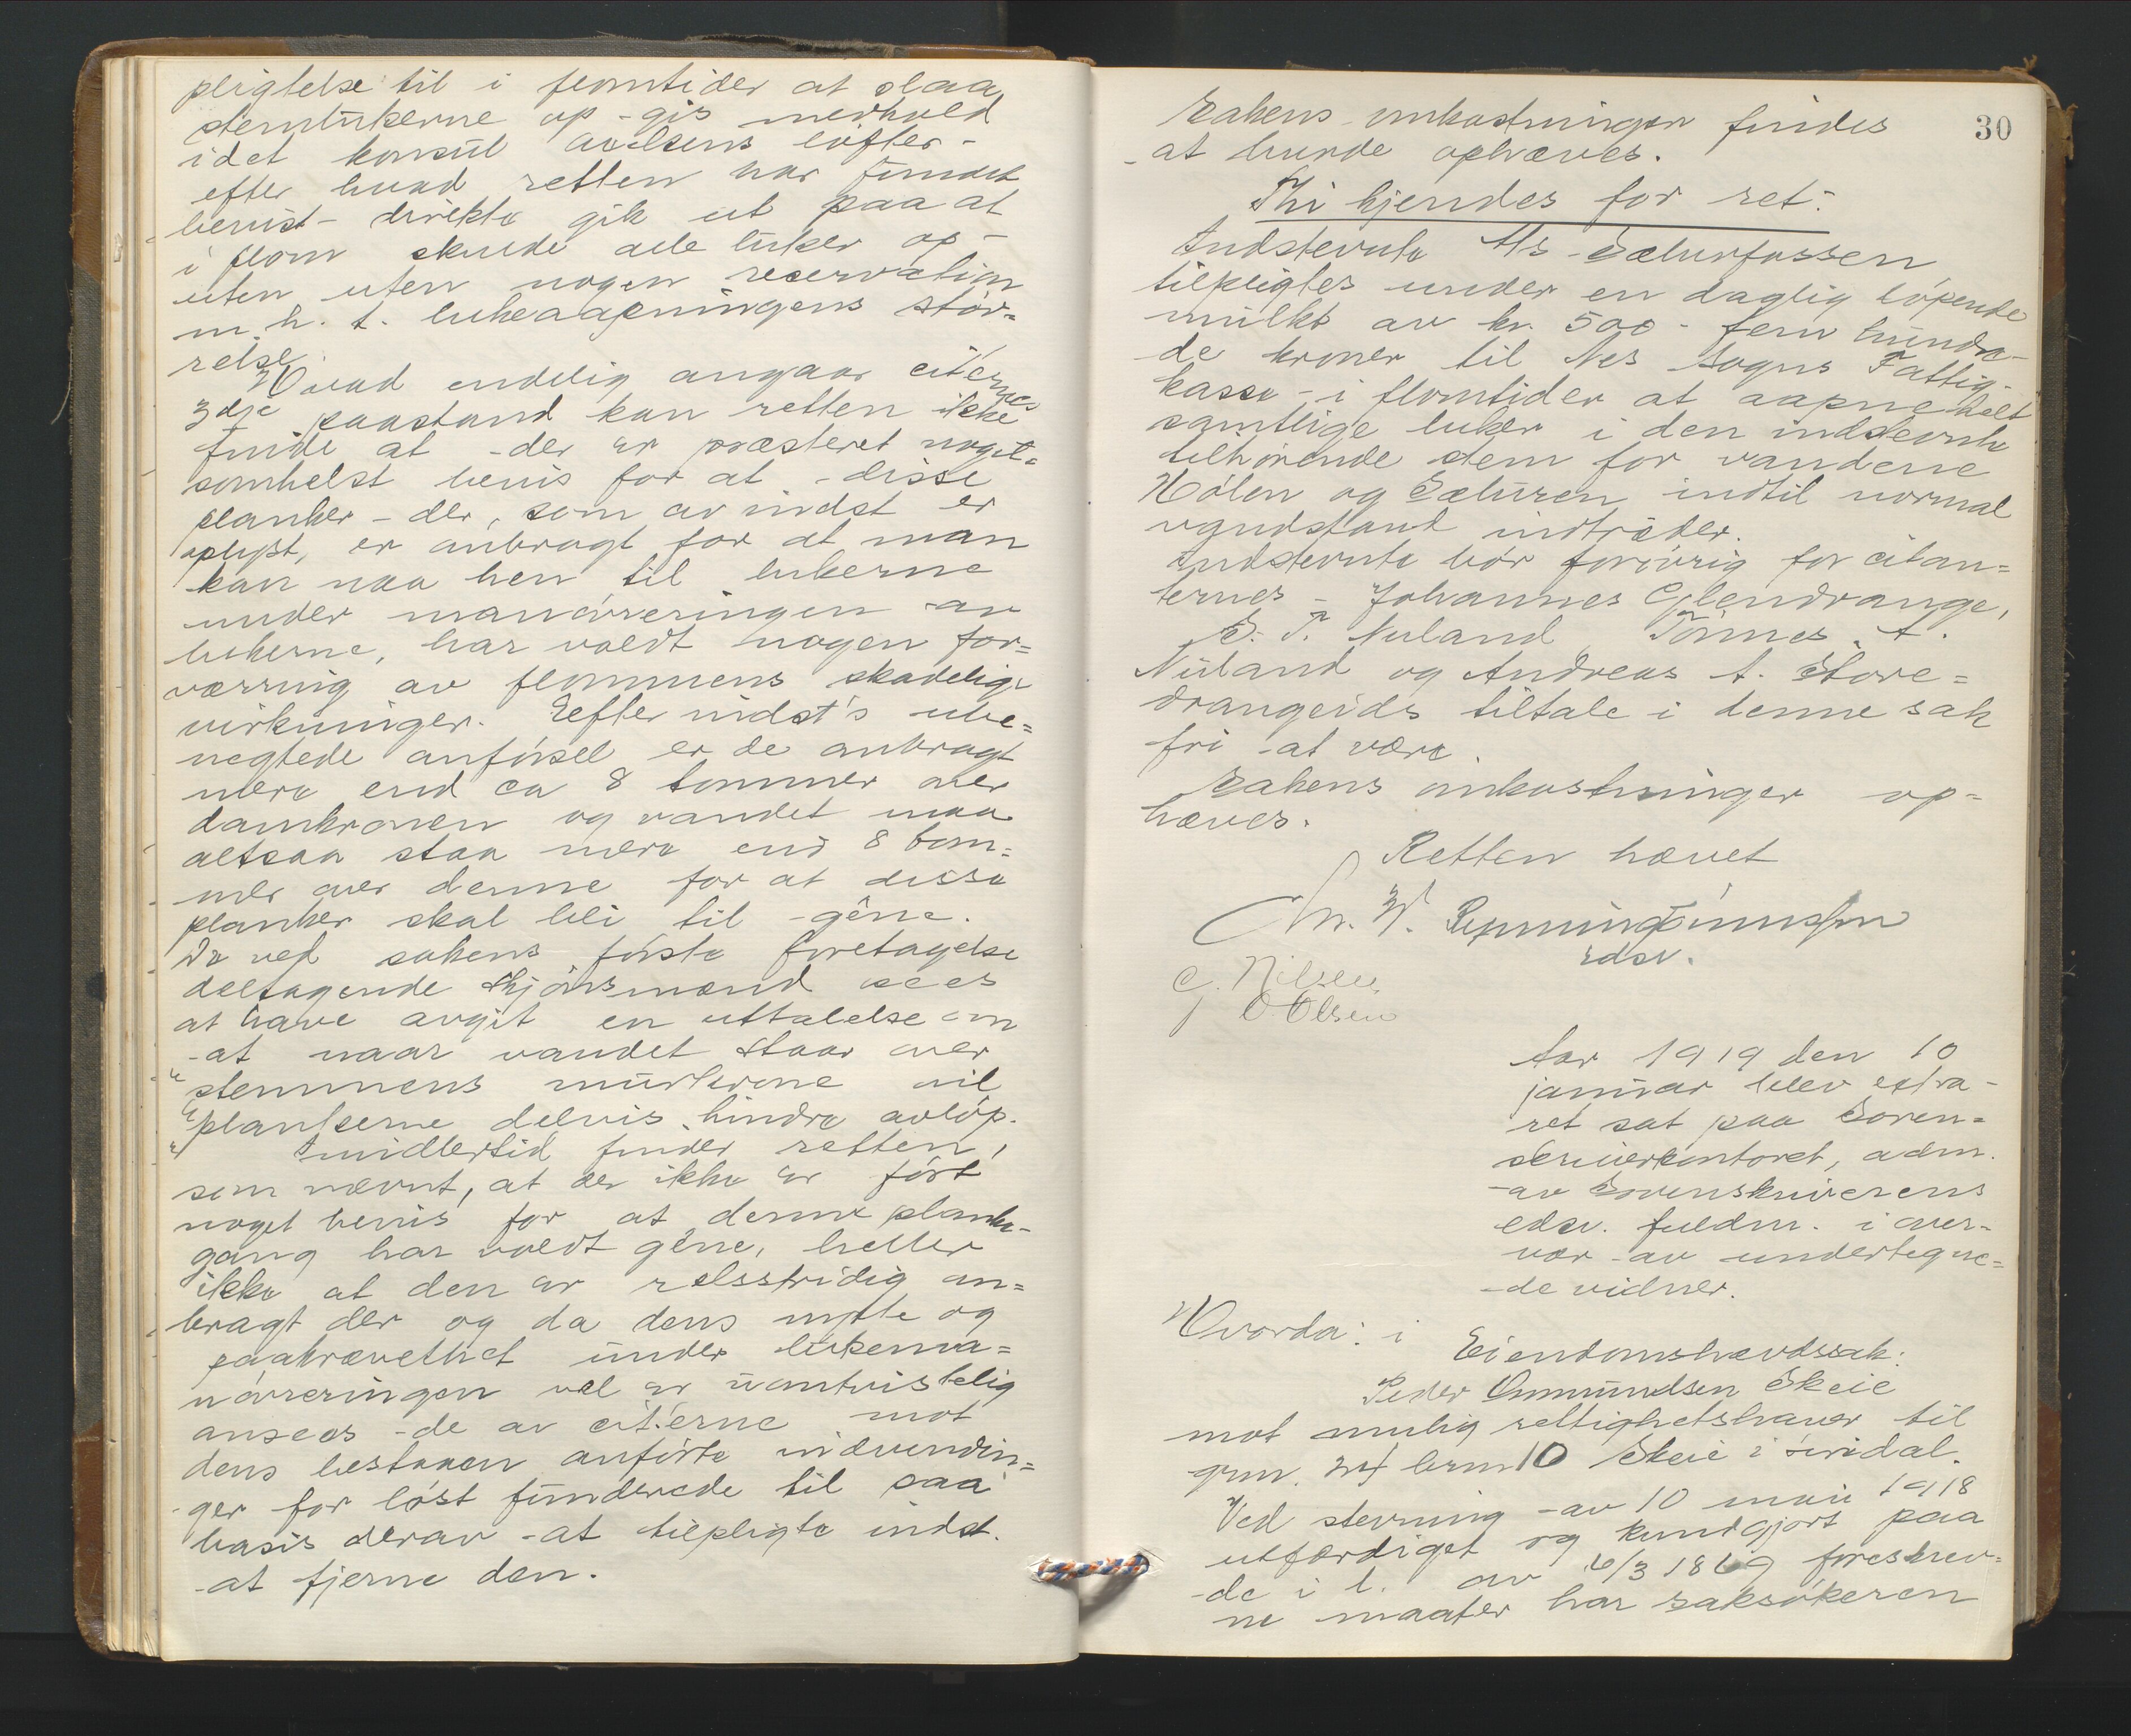 pligtelse til i flomtider at slaa
stemlukerne op - gis medhold
idet konsul Axelsens løfter -
efter hvad retten har fundet
bevist - direkte gik ut paa at
i flom skulde alle luker op -
uten uten nogen reservation
m. h. t. lukeaapningens stør=
relse.
Hvad endelig angaar citernes
3dje paastand kan retten ikke
finde at der er præsteret noget=
somhelst bevis for at disse
planker - der, som av indst er
oplyst, er anbragt for at man
kan naa hen til lukerne
under manøvreringen av
lukerne, har voldt nogen for=
værring av flommens skadelige
virkninger. Efter indst's ube=
negtede anførsel er de anbragt
mere end ca 8 tommer over
damkronen og vandet maa
altsaa staa mere end 8 tom=
mer over denne for at disse
planker skal bli til gêne.
De ved sakens første foretagelse
deltagende skjønsmænd sees
at have avgit en uttalelse om
at naar vandet staar over
"stemmens murkrone vil
"plankerne delvis hindre avløp.
" Imidlertid finder retten,
som nævnt, at der ikke er ført
noget bevis for at denne planke-
gang har voldt gêne, heller
ikke at den er retsstridig an=
bragt der og da dens nytte og
paakrævethet under lukema=
nøvreringen vel er uomtvistelig
ansees de av citerne mot
dens bestaaen anførte indvendin=
ger for løst funderede til paa
basis derav at tilpligte indst.
at fjerne den.
30
Sakens omkostninger findes
at burde ophæves.
Thi kjendes for ret:
Indstevnte A/s Sælurfossen
tilpligtes under en daglig løpende
mulkt av kr. 500 - fem hundre-
de kroner til Nes Sogns Fattig-
kasse - i flomtider at aapne helt
samtlige luker i den indstevnte
tilhørende stem for vandene
Hølen og Sæluren indtil normal
vandstand indtræder.
Indstevnte bør forøvrig for citan=
ternes - Johannes Eglendrange,
S. T. Nuland, Tønnes A.
Nuland og Andreas A. Store=
drangeids tiltale i denne sak
fri at være
Sakens omkostninger op=
hæves.
Retten hævet
Chr. W.
edsv.
G. Nilsen
O Olsen
Aar 1919 den 10
januar blev extra-
ret sat paa Soren=
skriverkontoret, adm.
av Sorenskriverens
edsv. fuldm. i over-
vær av undertegne=
de vidner.
Hvorda: i
Eiendomshævdssak:
Peder Ommundsen Skeie
mot mulig rettighetshaver til
grn. 24 brn 10 Skeie i Siridal.
Ved stevning av 10 mai 1918
utfærdiget og kundgjort paa
de i l. av 6/3 1869 foreskrev=
ne maater har saksøkeren